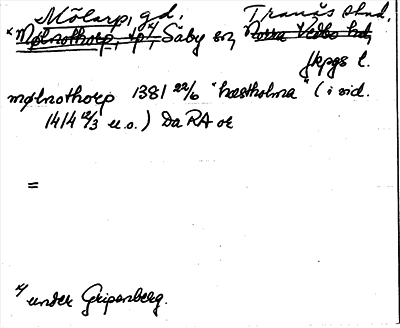 Mölarp, gd. Tranås stad,
*Mølnothorp, tp, x/ Säby sn, Norra Vedbo hd,
Jkpgs l.
mølnothorp 1381 22/6 "hæstholma" (i vid.
1414 12/3 u.o.) Da RA or
=
x/ under Gripenberg.